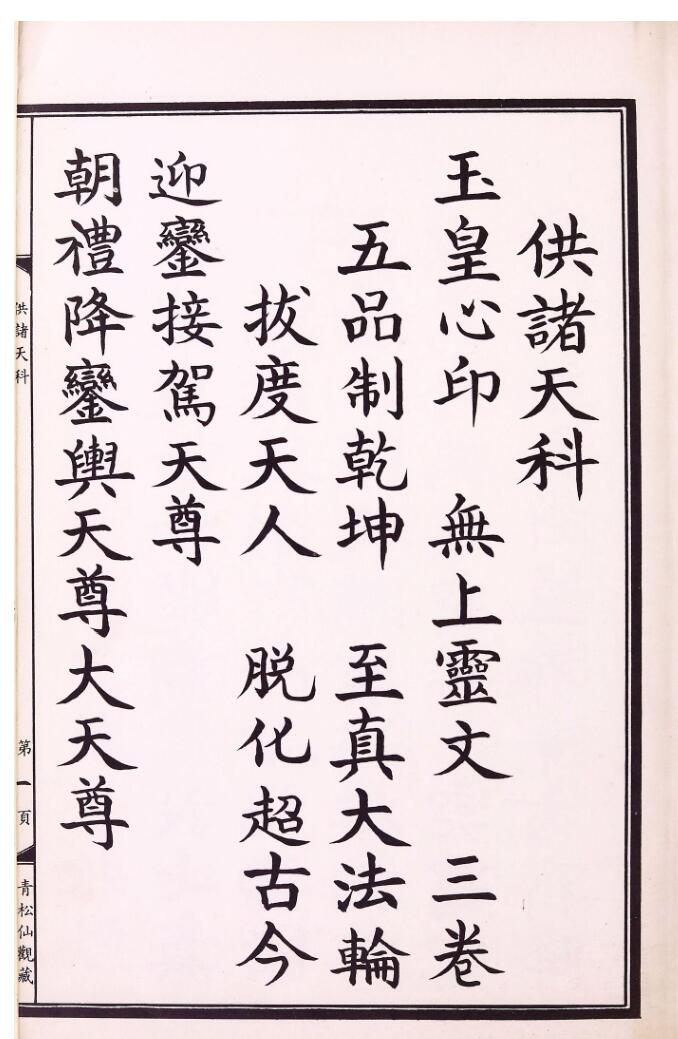 供諸天科
玉皇心印　無上靈文　三卷
五品制乾坤　至真大法輪
拔度天人　脱化超古今
迎鑾接駕天尊
朝禮降鑾輿天尊大天尊
供諸天科　第一頁　青松仙觀藏